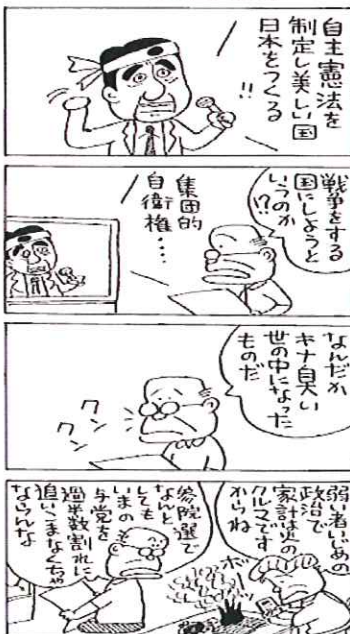 自主憲法を
制定し美しい国
日本をつくる
!!
戦争をする
国にしようと
いうのか
!?
集団的
自衛権‥‥
なんだか
キナ臭い
世の中になった
ものだ
クン
クン
弱い者いじめの
政治で
家計は火の
クルマです
からね
ボー
参院選で
なんと
しても
いまの
与党を
過半数割れに
追いこまなくちゃ
ならんな